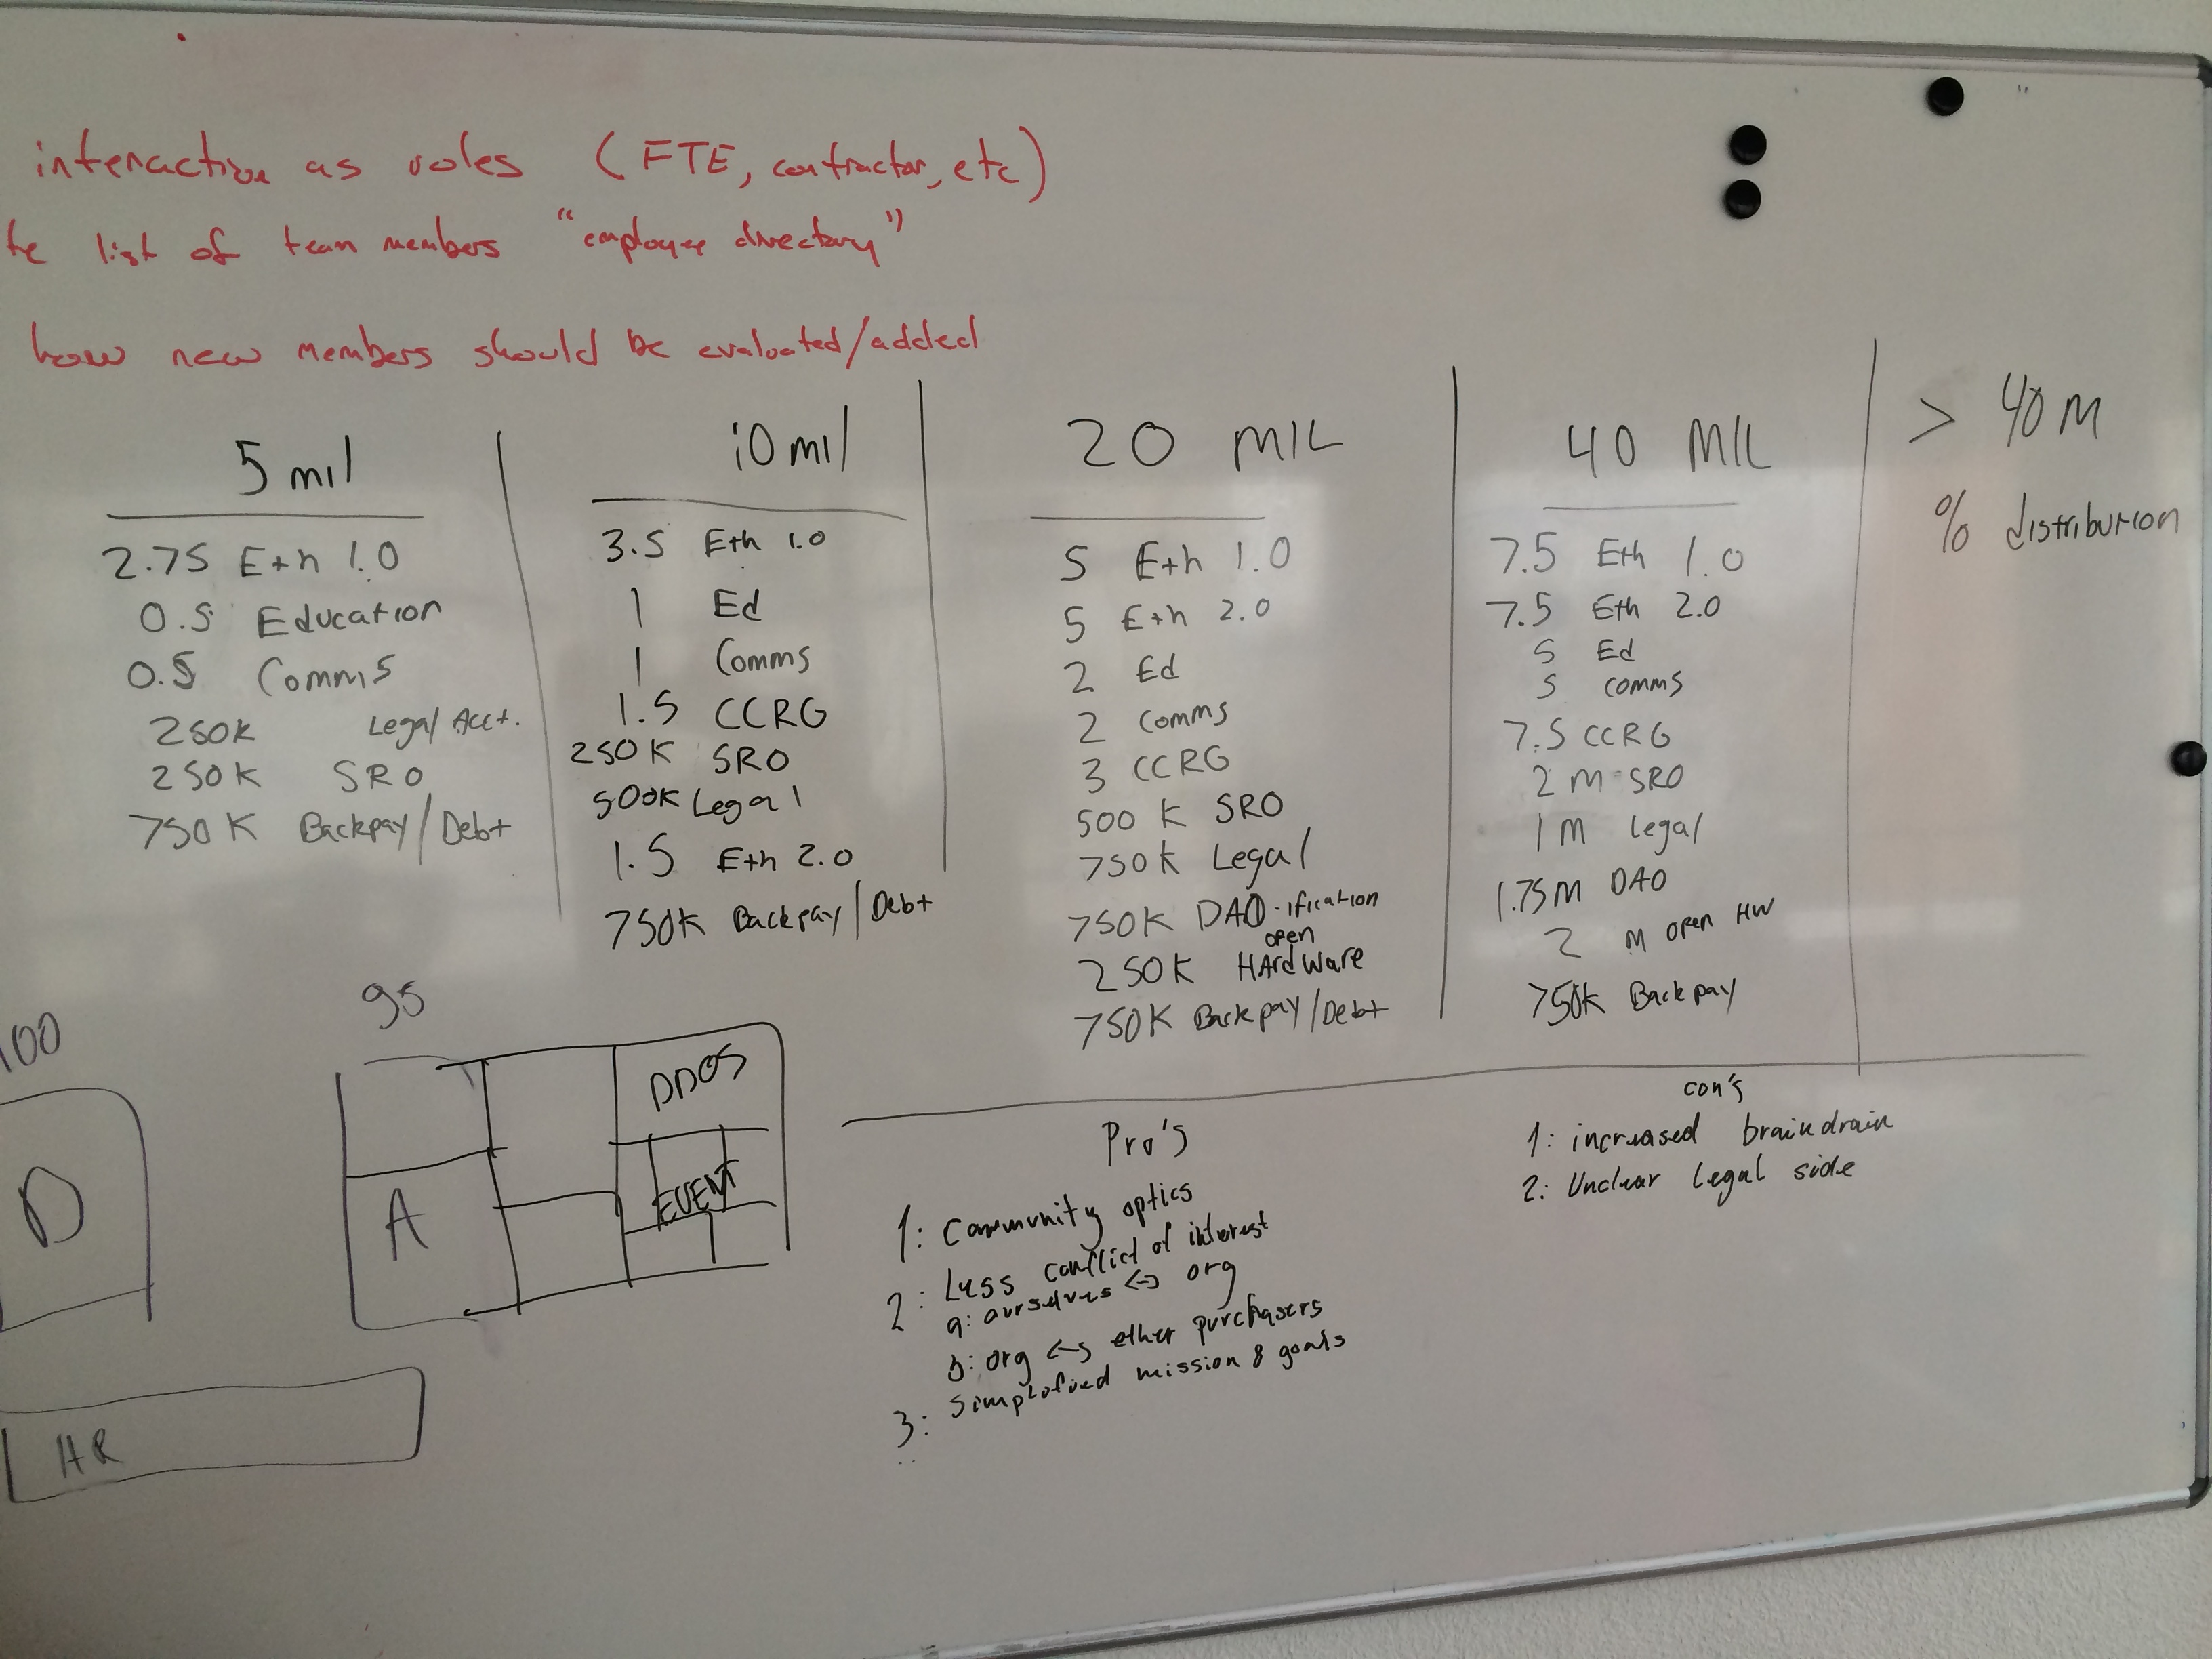 interaction as roles (FTE, contractor, etc)
te list of team members "employee directory"
how new members should be evaluated/added
5 mil
2.75 Eth 1.0
0.5 Education
0.5 Comms
250K Legal Acct.
250K SRO
750K Backpay/Debt
10 mil
3.5 Eth 1.0
1 Ed
1 Comms
1.5 CCRG
250K SRO
500K Legal
1.5 Eth 2.0
750K Backpay/Debt
20 MIL
5 Eth 1.0
5 Eth 2.0
2 Ed
2 Comms
3 CCRG
500 K SRO
750K Legal
750K DAO-ification
open
250K HArdware
750K Backpay/Debt
40 MIL
7.5 Eth 1.0
7.5 Eth 2.0
5 Ed
5 comms
7.5 CCRG
2 M SRO
1 M legal
1.75M DAO
2 M open HW
750K Backpay
> 40 M
% distribution
100
D
HR
95
A
DDOS
EVENT
Pro's
1: Community optics
2: Less conflict of interest
a: ourselves <-> org
b: org <-> ether purchasers
3: Simplofied mission & goals
con's
1: increased braindrain
2: Unclear legal side